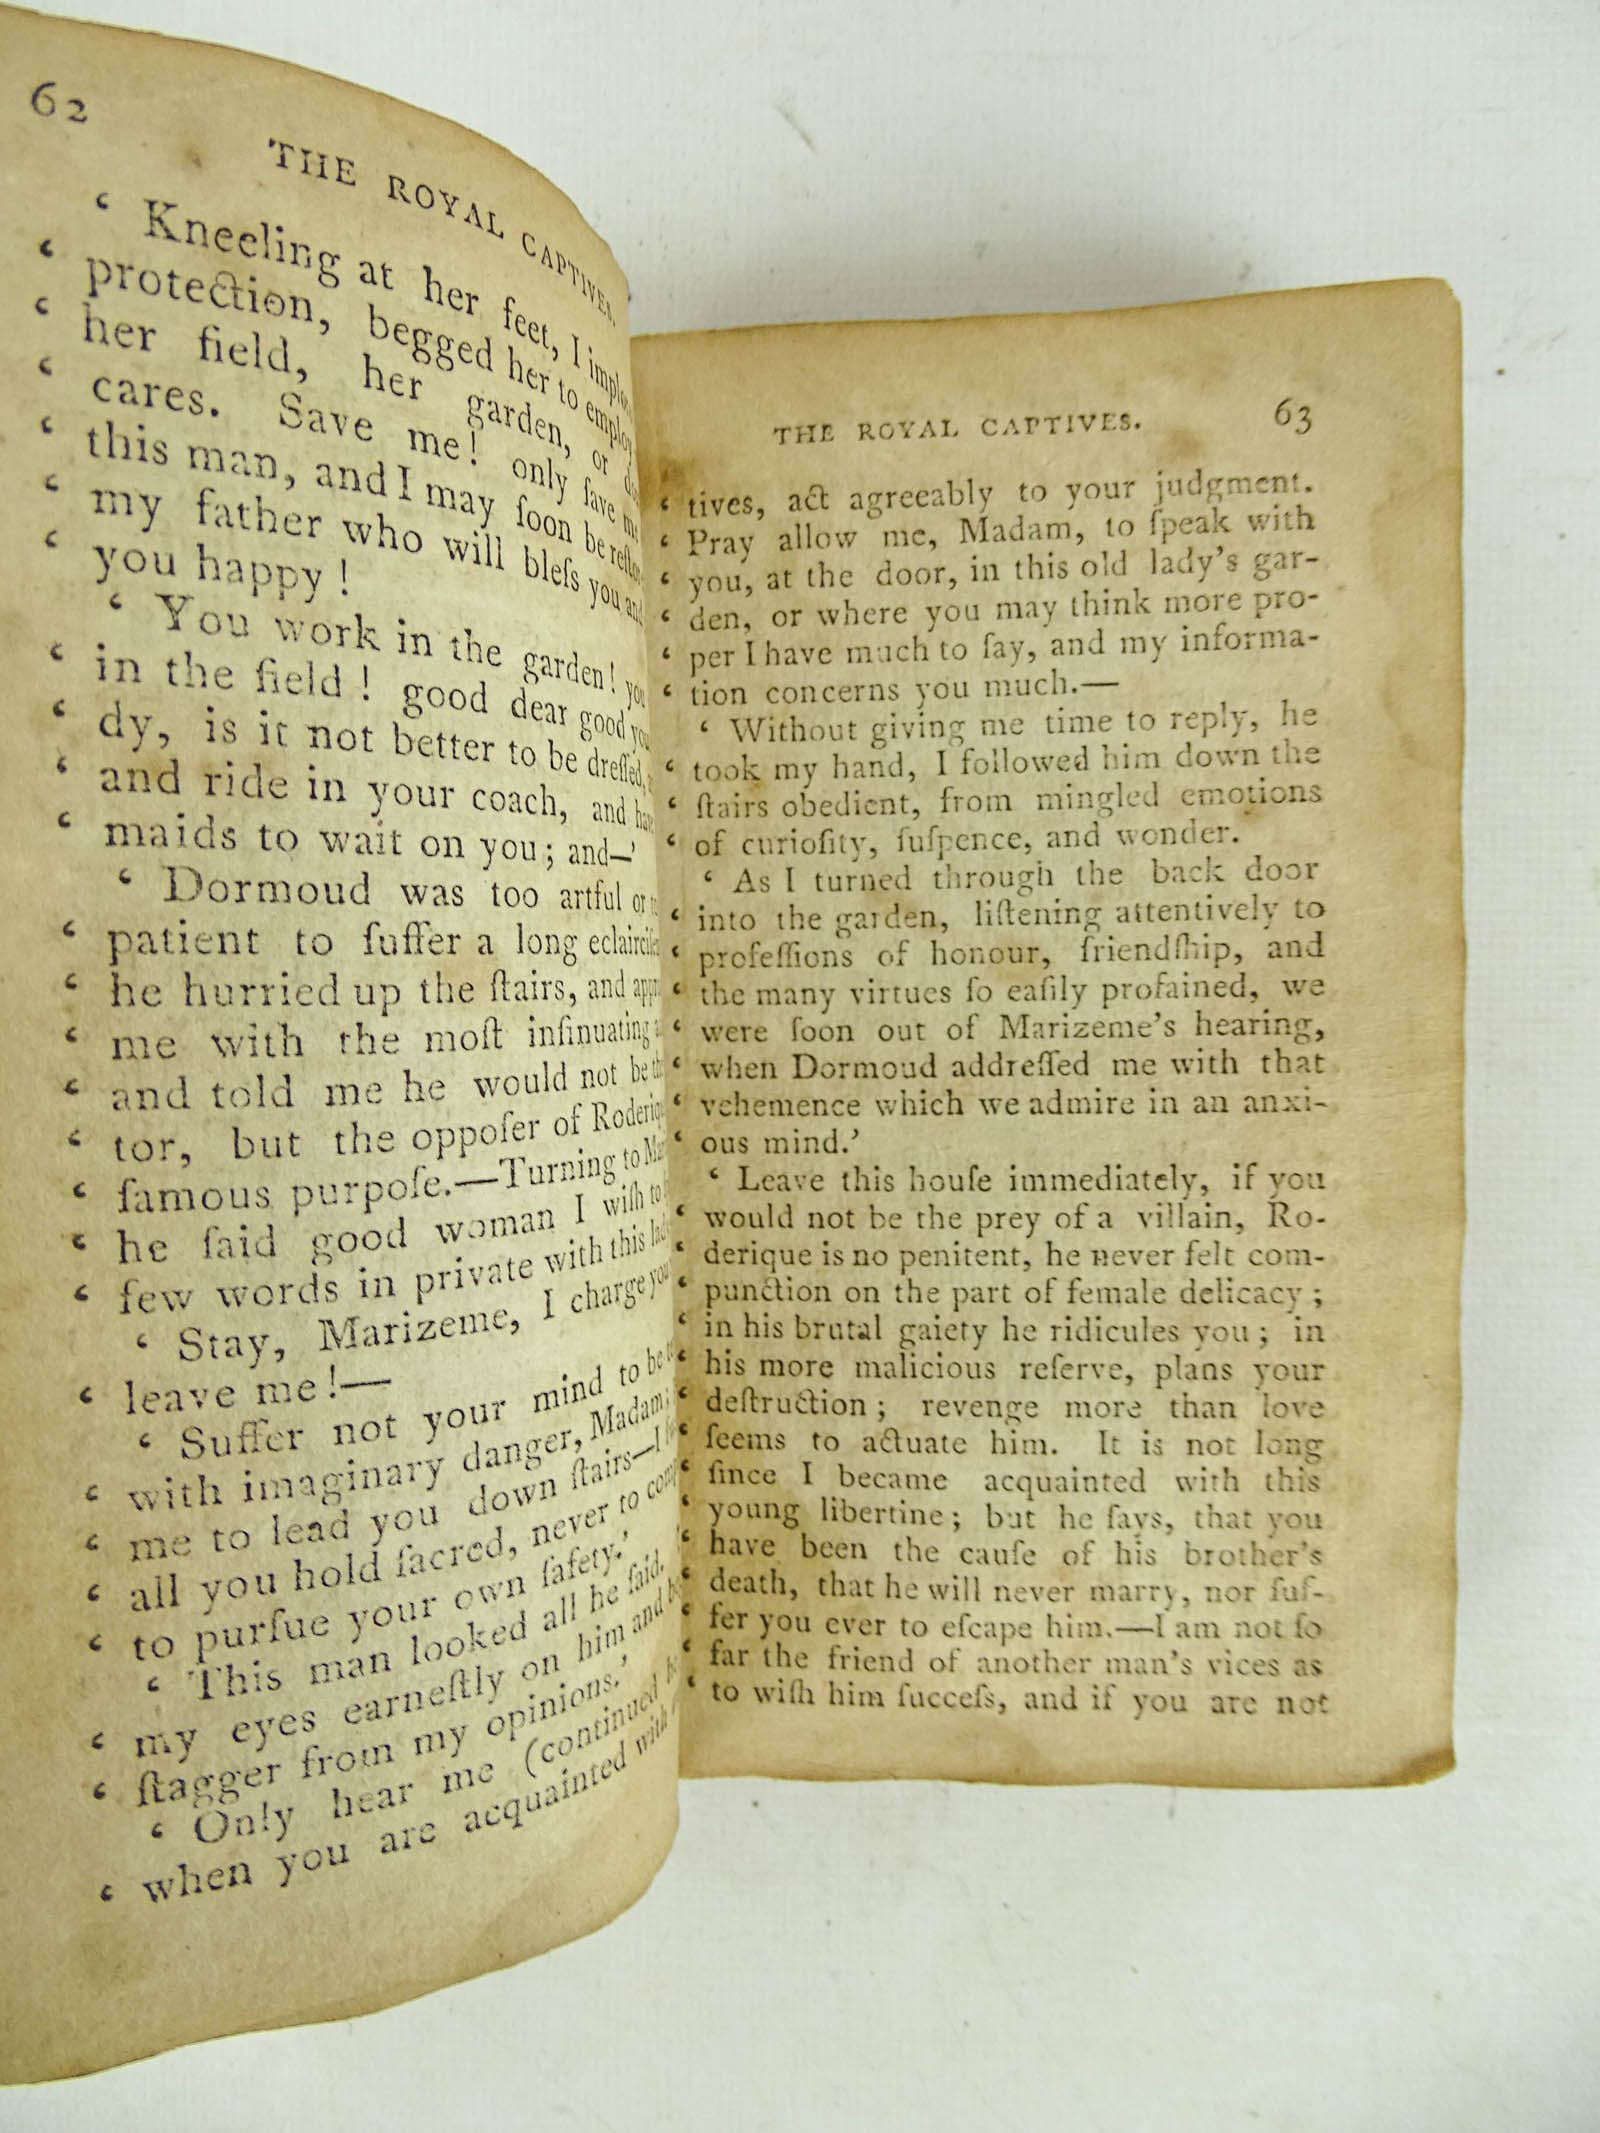 62
THE ROYAL CAPTIVES.
‘ Kneeling at her feet, I
‘ protection, begged her to employ
‘ her field, her garden, or
‘ cares. Save me! only ſave me
‘ this man, and I may ſoon be
‘ my father who will bleſs you and
‘ you happy!
‘ You work in the garden! you
‘ in the field! good dear good
‘ dy, is it not better to be dreſſed,
‘ and ride in your coach, and have
‘ maids to wait on you; and—’
‘ Dormoud was too artful or
‘ patient to ſuffer a long
‘ he hurried up the ſtairs, and
‘ me with the moſt inſinuating
‘ and told me he would not be
‘ tor, but the oppoſer of
‘ famous purpoſe.—Turning to
‘ he ſaid good woman I wiſh to
‘ few words in private with this
‘ Stay, Marizeme, I charge you
‘ leave me!—
‘ Suffer not your mind to be
‘ with imaginary danger, Madam;
‘ me to lead you down ſtairs—I
‘ all you hold ſacred, never to
‘ to purſue your own ſafety.’
‘ This man looked all he ſaid.
‘ my eyes earneſtly on him and
‘ ſtagger from my opinions.’
‘ Only hear me (continued
‘ when you are acquainted with
THE ROYAL CAPTIVES. 63
‘ tives, act agreeably to your judgment.
‘ Pray allow me, Madam, to ſpeak with
‘ you, at the door, in this old lady's gar-
‘ den, or where you may think more pro-
‘ per I have much to ſay, and my informa-
‘ tion concerns you much.—
‘ Without giving me time to reply, he
‘ took my hand, I followed him down the
‘ ſtairs obedient, from mingled emotions
‘ of curioſity, ſuſpence, and wonder.
‘ As I turned through the back door
‘ into the garden, liſtening attentively to
‘ profeſſions of honour, friendſhip, and
‘ the many virtues ſo eaſily profained, we
‘ were ſoon out of Marizeme's hearing,
‘ when Dormoud addreſſed me with that
‘ vehemence which we admire in an anxi-
‘ ous mind.’
‘ Leave this houſe immediately, if you
‘ would not be the prey of a villain, Ro-
‘ derique is no penitent, he never felt com-
‘ punction on the part of female delicacy;
‘ in his brutal gaiety he ridicules you; in
‘ his more malicious reſerve, plans your
‘ deſtruction; revenge more than love
‘ ſeems to actuate him. It is not long
‘ ſince I became acquainted with this
‘ young libertine; but he ſays, that you
‘ have been the cauſe of his brother's
‘ death, that he will never marry, nor ſuf-
‘ fer you ever to eſcape him.—I am not ſo
‘ far the friend of another man's vices as
‘ to wiſh him ſucceſs, and if you are not